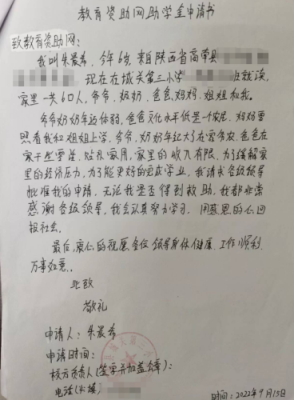 教育资助网助学金申请书
致教育资助网：
我叫朱
今年6岁，来自陕西省商南县
现在在城关第三小学 班就读，
家里一共6口人，爷爷、奶奶、爸爸、妈妈、姐姐和我。
爷爷奶奶年迈体弱，爸爸文化水平低是一个农民，妈妈要
照看我和姐姐上学，爷爷、奶奶年纪大了在家务农，爸爸在
家干些零活，贴补家用，家里的收入有限，为了缓解家
里的经济压力，为了能更好的完成学业，我请求各级领导
批准我的申请，无论我是否得到救助，我都非常
感谢各级领导，我会认真努力学习，用感恩的心回
报社会。
最后，衷心的祝愿各位领导身体健康，工作顺利，
万事如意。
此致
敬礼
申请人：朱
申请时间：
校方负责人（签字并加盖公章）：
电话（
时间：2022年9月15日